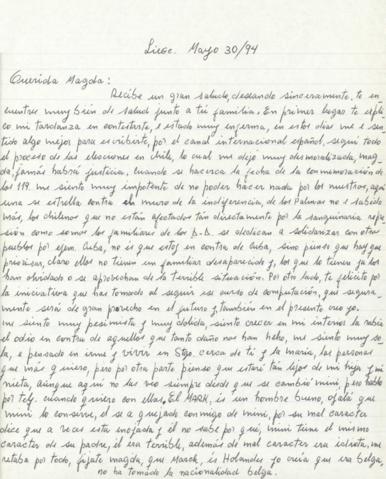 Mayo 30/94
Querida Magda:
Recibe un gran saludo, deseando sinceramente, te en
cuentres muy bien de salud junto a tú familia. En primer lugar te expli
co mi tardanza en contestarte, e estado muy enferma, en estos dias me e sen
tido algo mejor para escribirte, por el canal internacional español, segui todo
el proceso de las elecciones en Chile, lo cual me dejo muy desmoralizada, mag-
da, jamás habrá justicia, cuando se hacerca la fecha de la conmemoración de
los 119. me siento muy impotente de no poder hácer nada por los nuestros, aqui
una se estrella contra un muro de la indiferencia, de los Palmas no e sabido
más, los chilenos que no están afectados tan directamente por la sanguinaria repre
sión como somos los familiares de los D.D. se dedican a solidarizar con otros
pueblos por ejem. Cuba, no es que esté en contra de Cuba, sino pienso que hay que
priorizar, claro ellos no tienen un familiar desaparecido y, los que lo tienen ya los
han olvidado o se aprovechan de la terrible situación. Por otro lado, te felicito por
la iniciativa que has tomado al seguir ese curso de computación, que segura-
mente será de gran provecho en el futuro y, también en el presente creo yo.
me siento muy pesimista y muy dolida, siento crecer en mi interior la rabia
el odio en contra de aquellos que tanto daño nos han hecho, me siento muy so
la, e pensado en irme y vivir en Stgo, cerca de ti y la maria, las personas
que más quiero, pero por otra parte pienso que estaré tan lejos de mi hija y mi
nieta, aúnque aqui no las veo siempre desde que se cambió mini, pero hablo
por telf. cuando quiero con ellas, El MARK, es un hombre bueno, ojalá que
mini lo conserve, el se a quejado conmigo de mini, por su mal caracter
dice que a veces esta enojada y el no sabe por qué, mini tiene el mismo
caracter de su padre, el era terrible, además de mal caracter era idiota, me
retaba por todo, fijate magda, que Marck, es Holandes yo creia que era belga,
no ha tomado la nacionalidad belga.